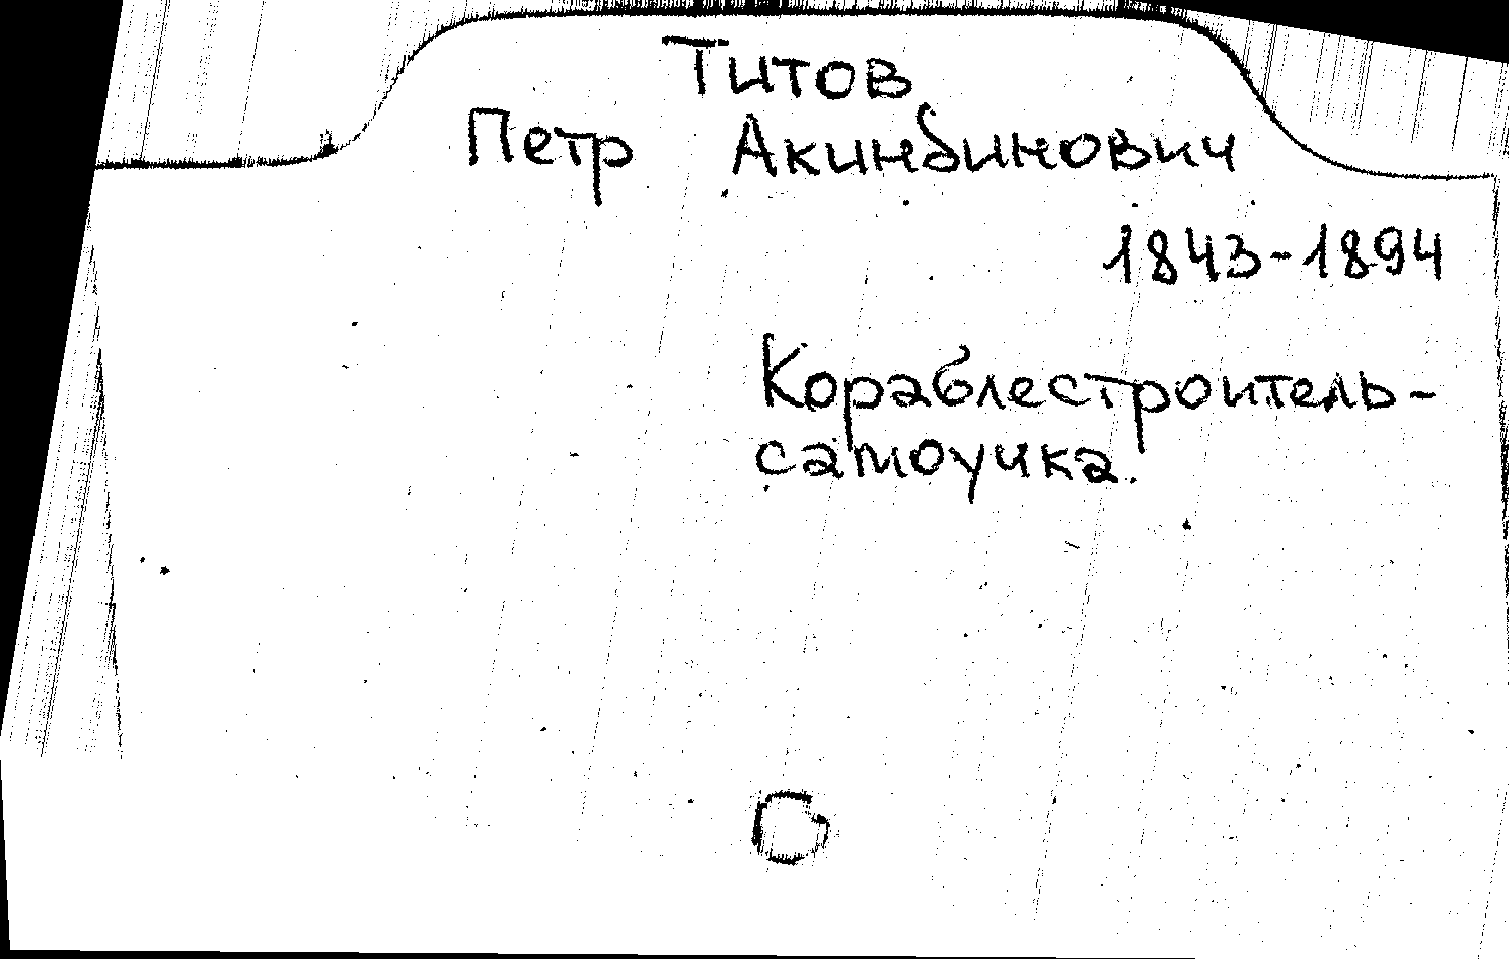 Титов
Петр Акинбинович
1843-1894
Кораблестроитель-
самоучка.